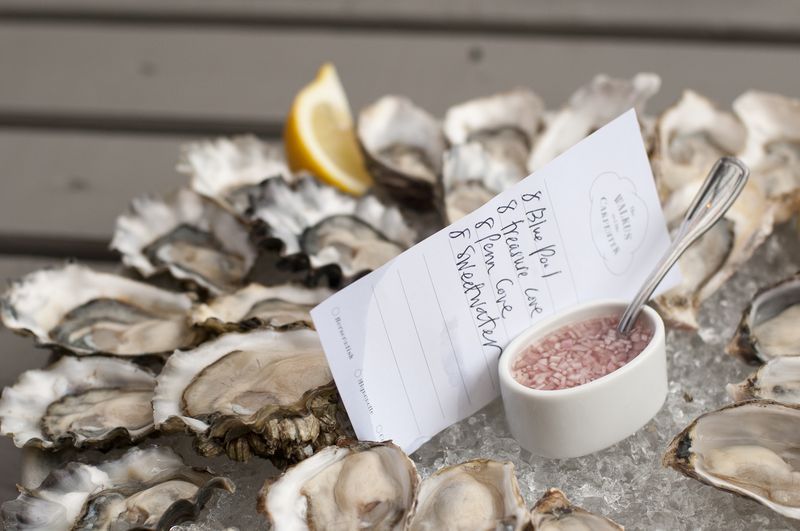 The
WALRUS
and the
CARPENTER
8 Blue Pool
8 Treasure Cove
8 Penn Cove
8 Sweetwater
Horseradish